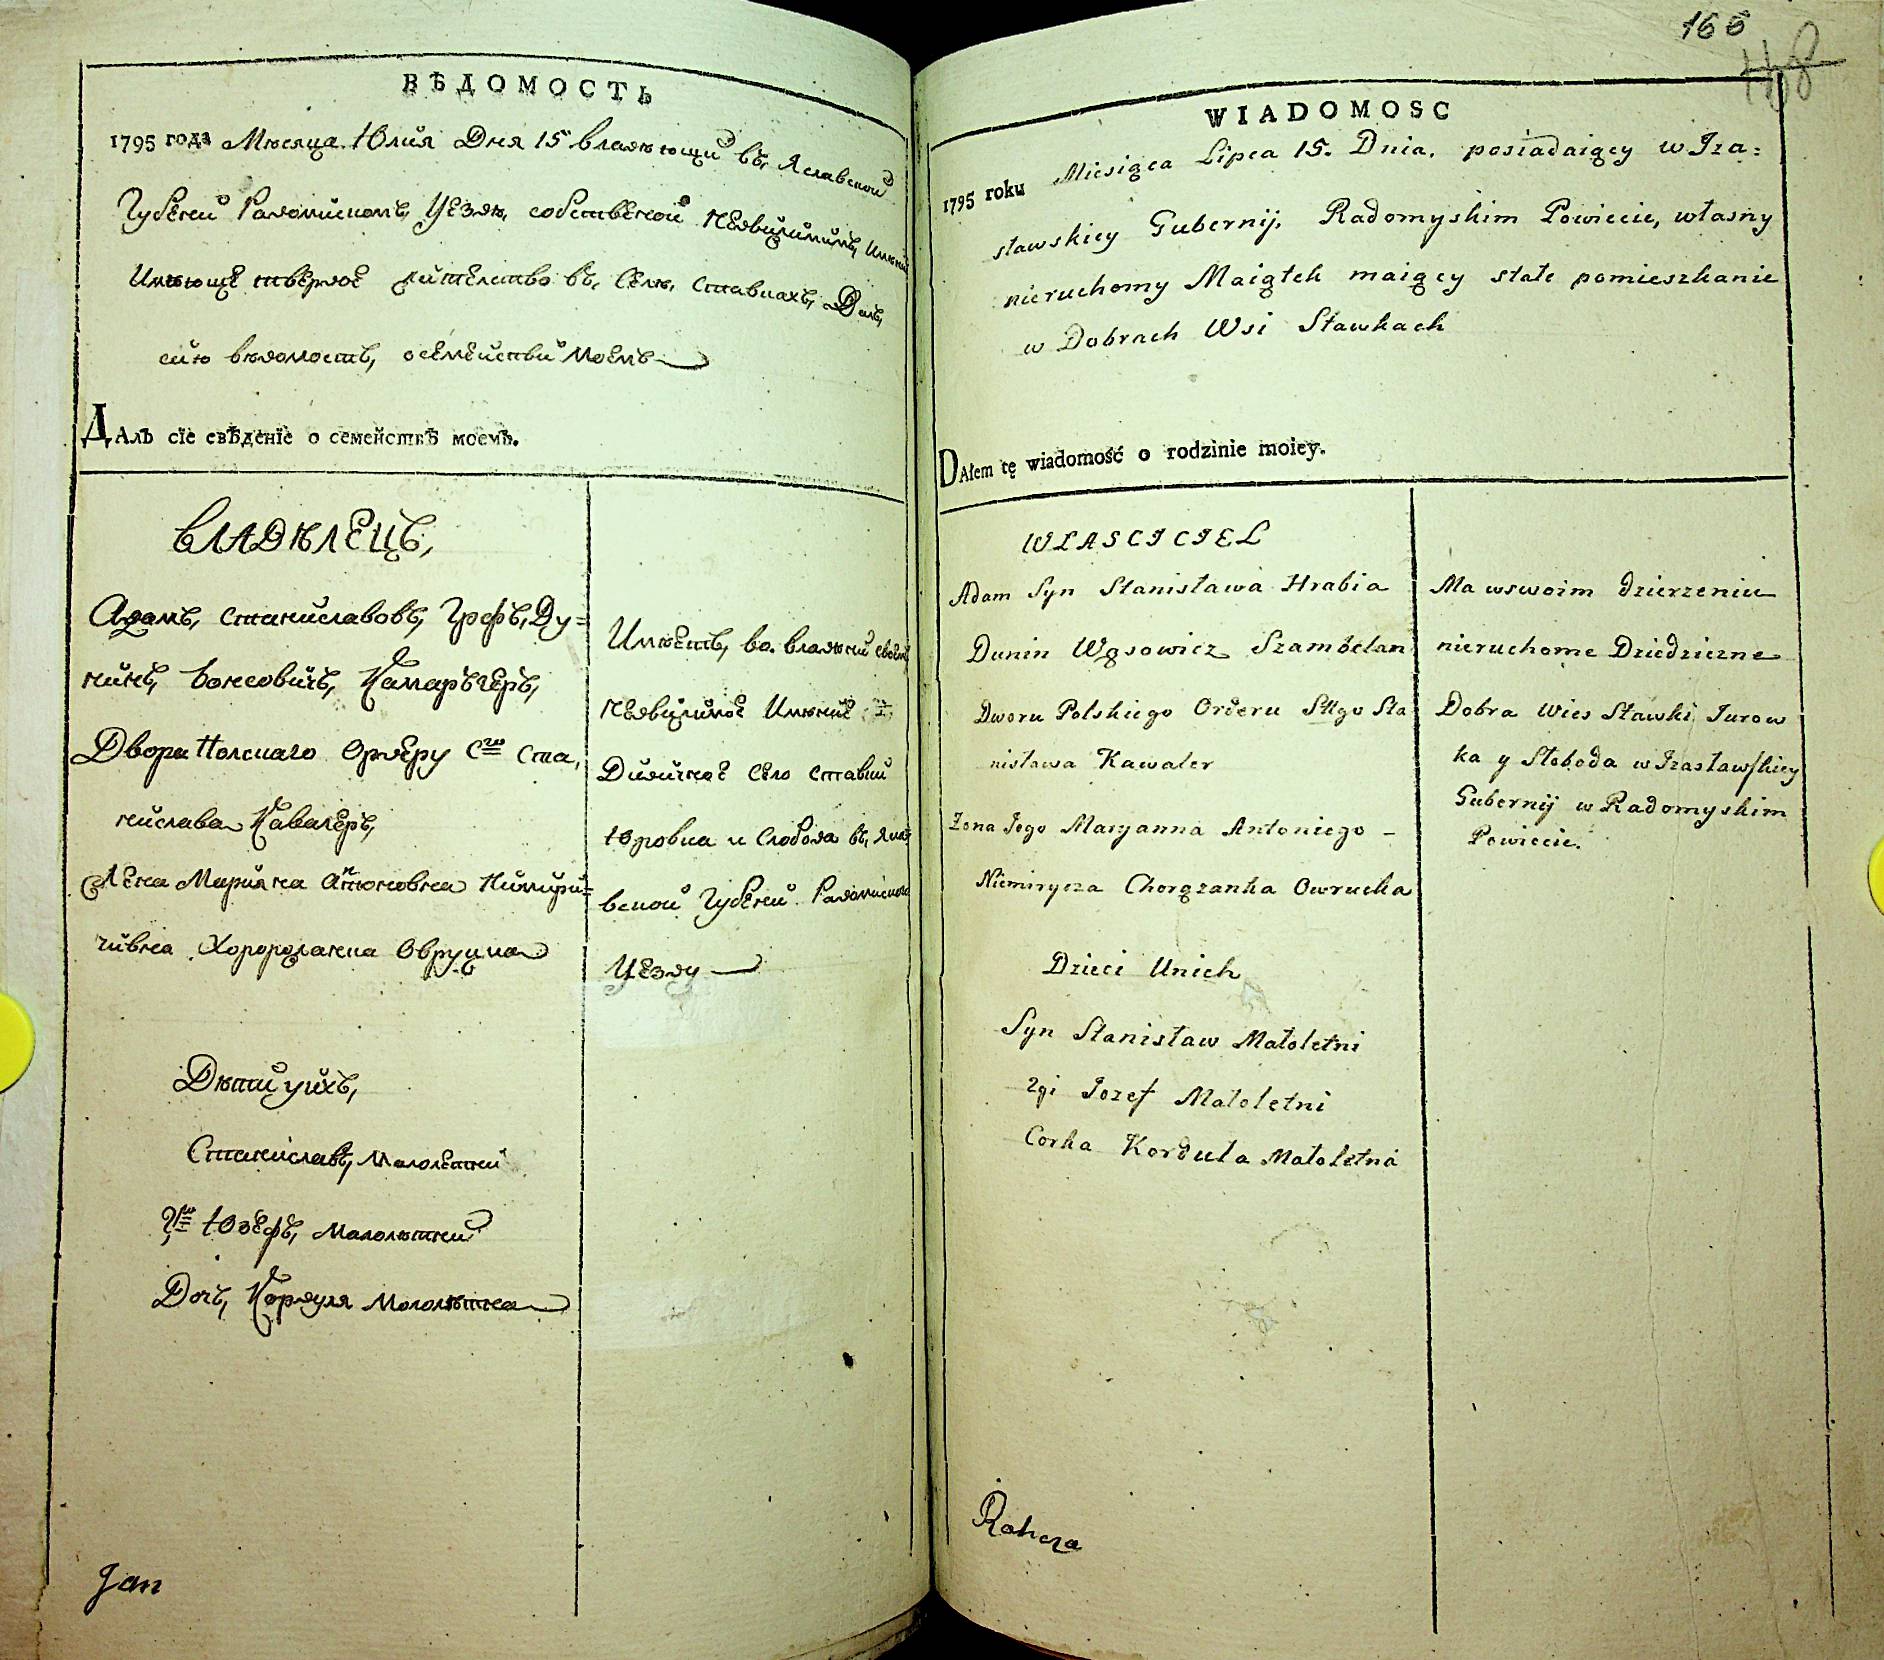 ВѢДОМОСТЬ
1795 года Мѣсяца Юлия Дня 15 владѣющи въ Яславской
Губѣнии Радомиском Уезду, собственой недвижимимъ имѣни
имѣюще твердое жителство въ Сѣлѣ Ставкахъ, Далъ
сию вѣдомость, о семействи моемъ
Далъ сїе свѣденїе о семействѣ моемъ.
ВЛАДѢЛЕЦЪ,
Адамъ, Станиславовъ, Грфъ, Ду=
нинъ, Вонсовичъ, Камаръгеръ,
Двора Полскаго Ордеру Сго Ста,
нислава Кавалеръ,
Жена Марияна Антоновна Нимири=
чивна Овруцка
Дѣти уихъ,
Станиславъ, Малолетни
Юзефъ, Малолѣтни
Дочъ, Кордуля Мололѣтна
Имѣетъ, во владѣнии своемъ
недвижимое Имѣние
Дидичное Село Ставки
Юровка и Слобода въ
Губѣнии
Уезду
Jan
166
WIADOMOSC
1795 roku Miesiąca Lipca 15. Dnia. posiadaiący w Iza=
sławskiey Gubernij, Radomyskim Powiecie, własny
nieruchomy Maiątek maiący stałe pomieszkanie
w Dobrach Wsi Stawkach
DAłem tę wiadomość o rodzinie moiey.
WŁASCICIEL
Adam Syn Stanisława Hrabia
Dunin Wąsowicz Szambelan
Dworu Polskiego Orderu Sttgo Sta
nisława Kawaler
Zona Jego Maryanna Antoniego –
Niemirycza Chorązanka Owrucka
Dzieci Unich
Syn Stanisław Małoletni
2gi Jozef Małoletni
Corka Korduła Małoletna
Ma wswoim dzierzeniu
nieruchome Dziedziczne
Dobra Wies Stawki Jurow
ka y Słoboda w Izasławskiey
Gubernij w Radomyskim
Powiecie.
Rohoza